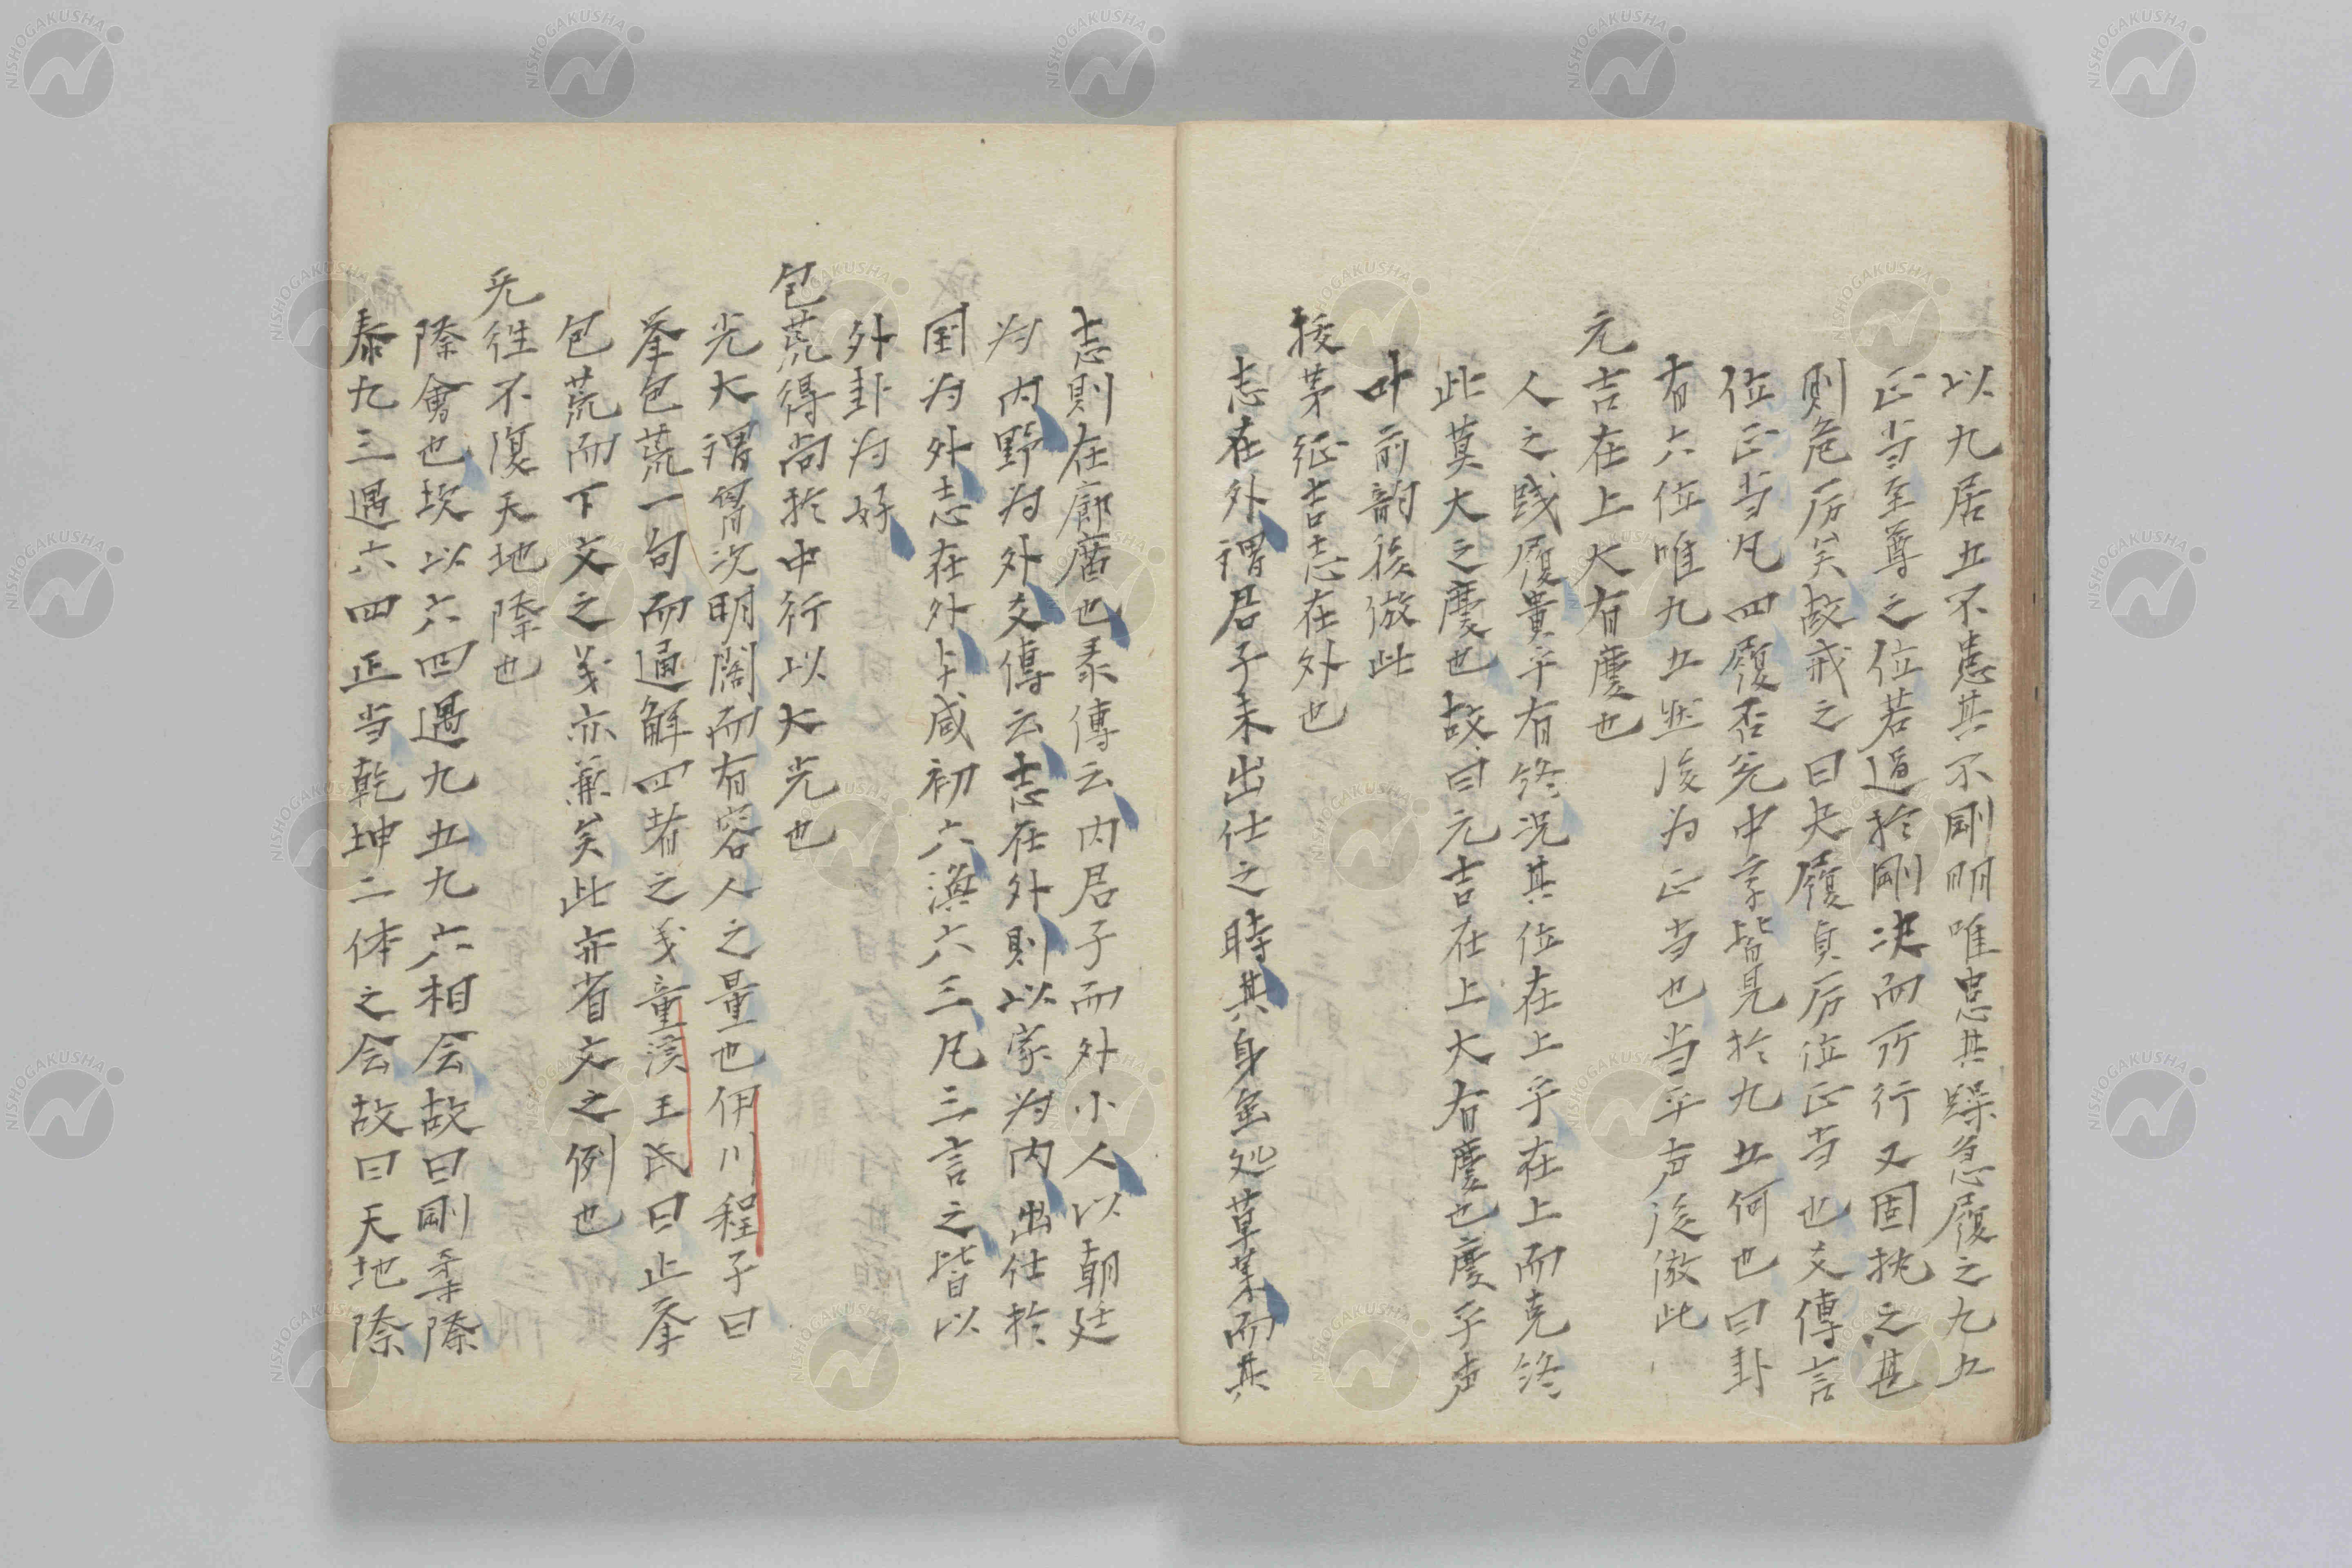 以九居五不患其不剛明唯患其躁急履之九五
正当至尊之位若過於剛决而所行又固执之甚
則危厉矣故戒之曰夬履貞厉位正当也文傳言
位正当凡四履否兌中孚皆見於九五何也曰卦
有六位唯九五然后为正当也当平声後倣此
元吉在上大有慶也
人之践履貴乎有终况其位在上乎在上而克终
此莫大之慶也故曰元吉在上大有慶也慶平声
叶前韵後倣此
拔茅征吉志在外也
志在外谓君子未出仕之時其身虽処草莱而其
志則在廊庙也彖傳云内君子而外小人以朝廷
为内野为外文傳云志在外則以家为内出仕於
国为外志在外与咸初六渙六三凡三言之皆以
外卦为好
包荒得尚於中行以大光也
光大谓胷次明濶而有容人之量也伊川程子曰
举包荒一句而通解四者之义童溪王氏曰止举
包荒而下文之义亦兼矣此亦省文之例也
无往不復天地際也
際會也坎以六四遇九五九六相会故曰剛柔際
泰九三遇六四正当乾坤二体之会故曰天地際
NISHOGAKUSHA